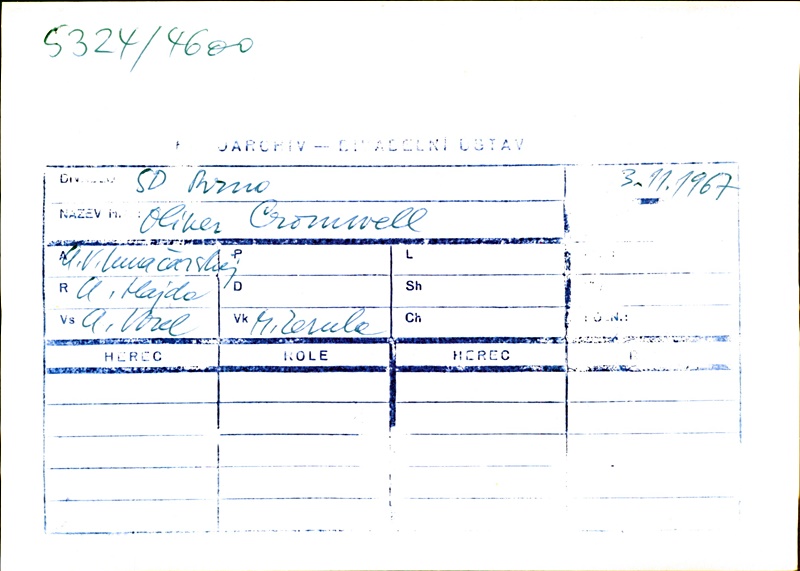 5324/4600
OARCHIV — DIVADELNÍ ÚSTAV
SD Brno 3.11.1967
NÁZEV H. Oliver Cromwell
A A.V. Lunačarskij P L
R A. Hajda D Sh
Vs A. Vorel Vk M. Zezula Ch
HEREC ROLE HEREC R